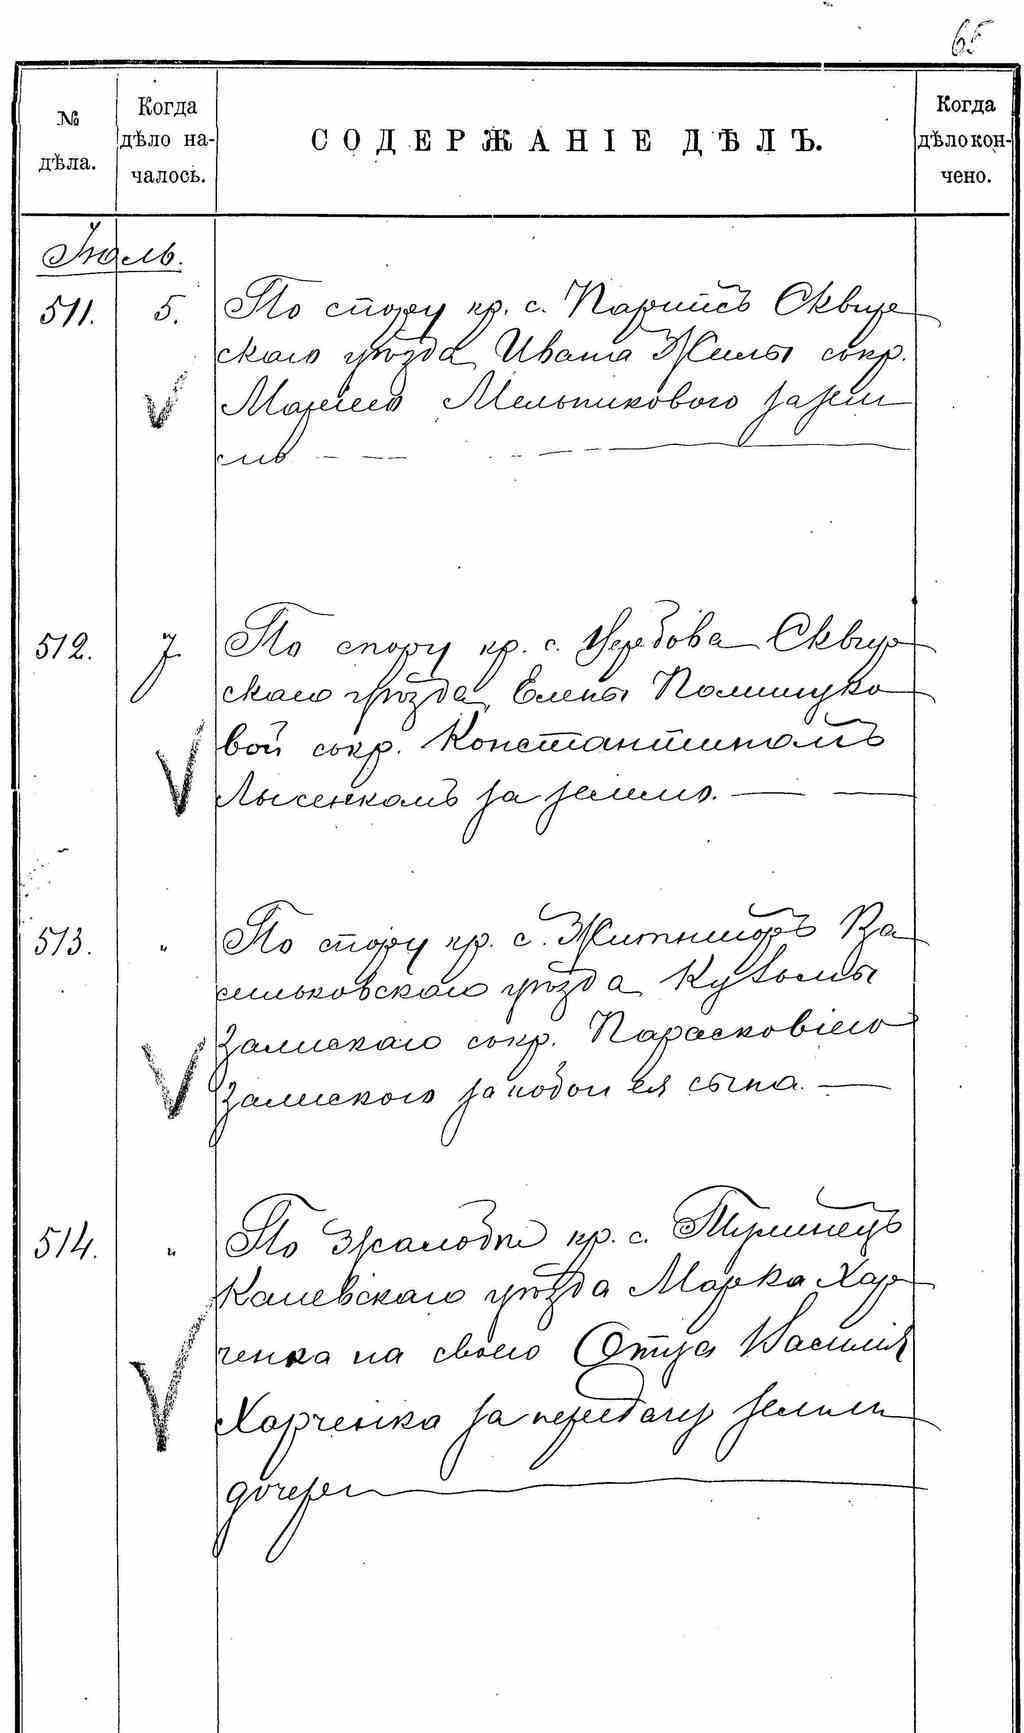 65
№ дѣла.
Когда дѣло на-чалось.
СОДЕРЖАНІЕ ДѢЛЪ.
Когда дѣло кон-чено.
Іюль.
511. 5. По спору кр. с. Парипсъ Сквир
скаго уѣзда Ивана Жилы съ кр.
Маріею Мельниковою за зем
лю
512. 7 По спору кр. с. Сквир
скаго уѣзда, Елены
вой съ кр. Константиномъ
Лысенкомъ за землю.
513. " По спору кр. с. Житнегоръ Ва
сильковскаго уѣзда Кузьмы
Залискаго съ кр. Парасковіею
Залискою за побои ея сына.
514. " По жалобѣ кр. с. Тулинецъ
Каневскаго уѣзда Марка Хар
ченка на своего Отца Василія
Харченка за передачу земли
дочери